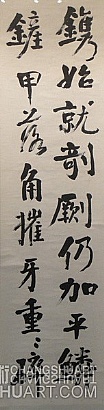 鐫始就剞劂仍加平
鏟甲落角摧牙重〻
CHANGSHUART
HUART.COM